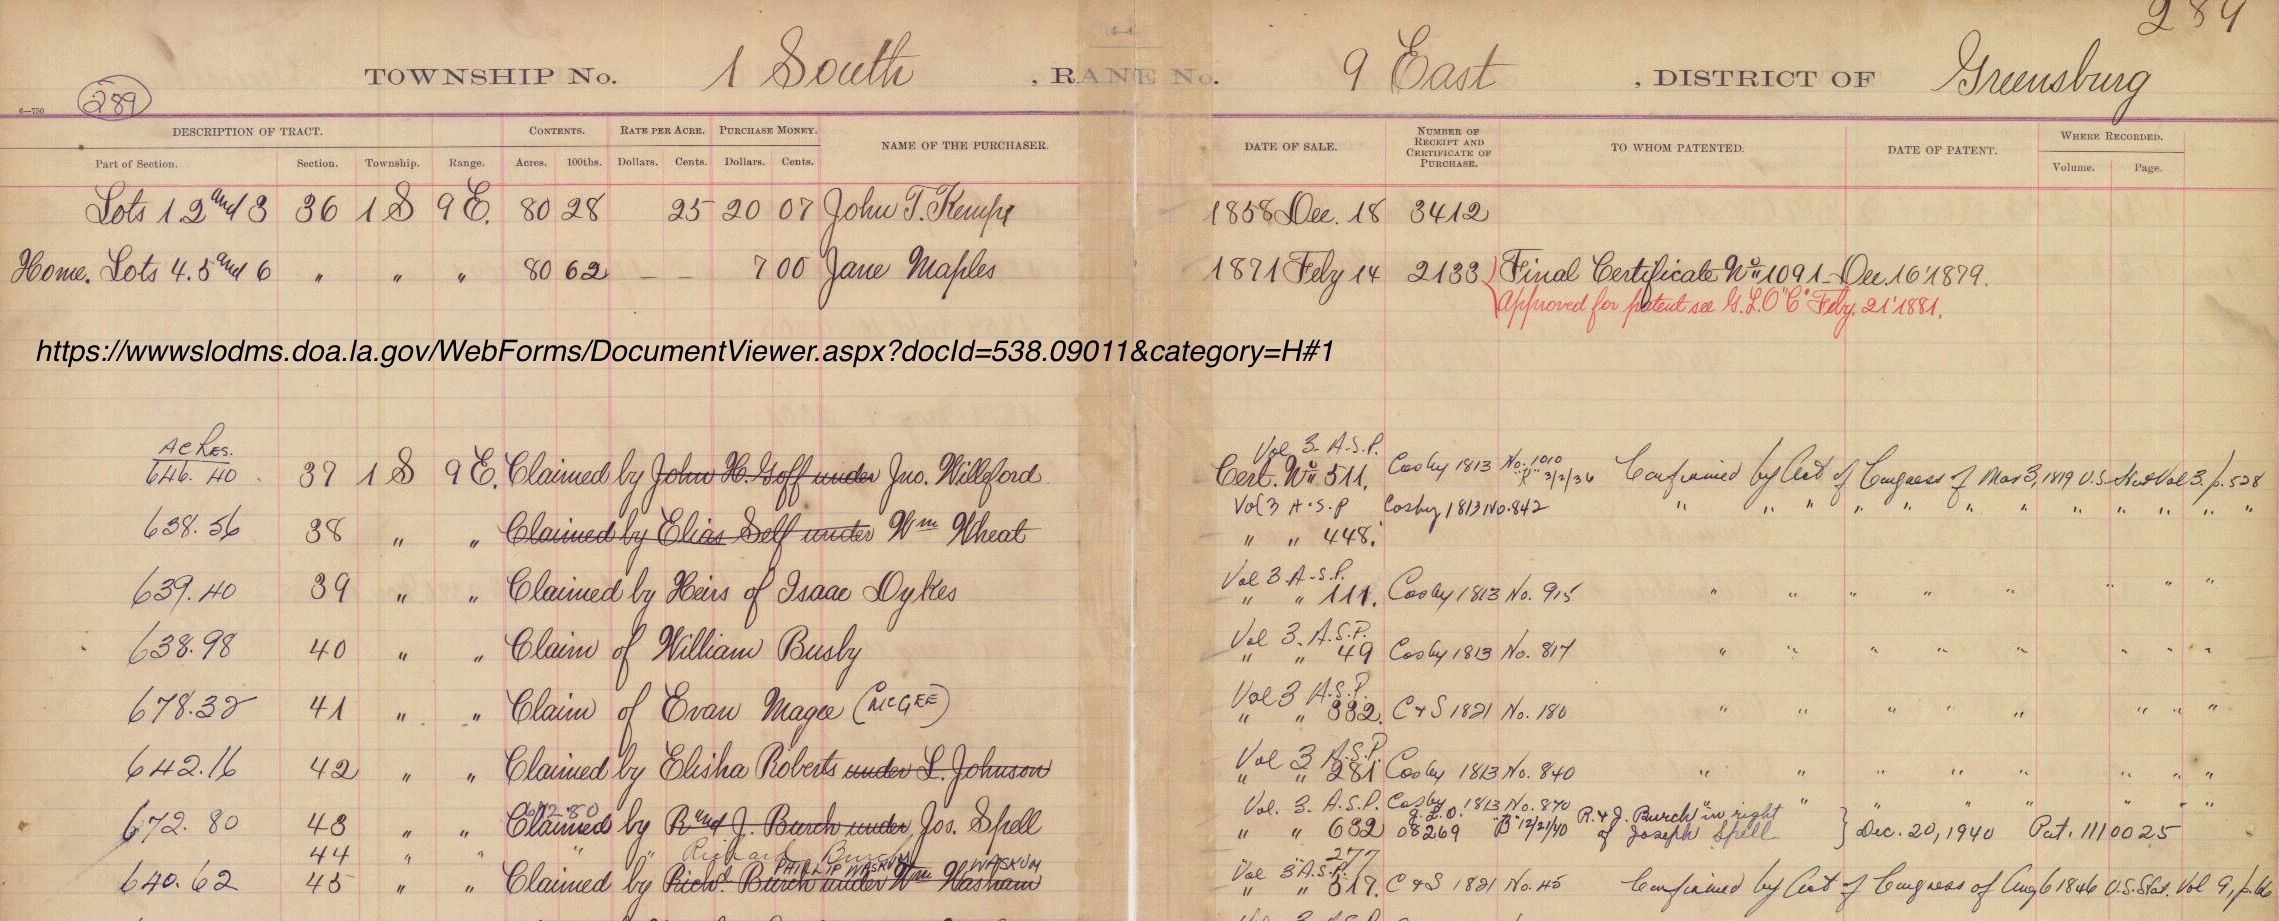 289
TOWNSHIP No. 1 South , RANGE No. 9 East , DISTRICT OF Greensburg
289
6—750
DESCRIPTION OF TRACT. CONTENTS. RATE PER ACRE. PURCHASE MONEY. NAME OF THE PURCHASER. DATE OF SALE. NUMBER OF RECEIPT AND CERTIFICATE OF PURCHASE. TO WHOM PATENTED. DATE OF PATENT. WHERE RECORDED.
Part of Section. Section. Township. Range. Acres. 100ths. Dollars. Cents. Dollars. Cents. Volume. Page.
Lots 1.2 and 3 36 1 S 9 E. 80 28 25 20 07 John T. Kemp 1858 Dec. 18 3412
Home. Lots 4.5 and 6 " " " 80 62 — — 7 00 Jane Maples 1871 Feby 14 2133 Final Certificate No 1091 - Dec. 16 '1879.
Approved for patent see G.L.O "C" Feby. 21' 1881.
https://wwwslodms.doa.la.gov/WebForms/DocumentViewer.aspx?docId=538.09011&category=H#1
Acres. Vol 3. A.S.P.
646.40 37 1 S 9 E. Claimed by John H. Goff under Jno. Williford Cert. No 511. Cosby 1813 No. 1010 "K" 3/2/36 Confirmed by Act of Congress of Mar 3, 1819 U.S. Stat Vol 3. p. 528
Vol 3 A.S.P Cosby 1813 No. 842 " " " " " " " " " " "
638.56 38 " " Claimed by Elias Self under Wm Wheat " " 448.
Vol 3 A.S.P.
639.40 39 " " Claimed by Heirs of Isaac Dykes " " 111. Cosby 1813 No. 915 " " " " " " " "
Vol 3. A.S.P.
638.98 40 " " Claim of William Busby " " 49 Cosby 1813 No. 817 " " " " " " " "
Vol 3 A.S.P.
678.32 41 " " Claim of Evan Magee (McGEE) " " 332. C & S 1821 No. 180 " " " " " " " "
Vol 3 A.S.P.
642.16 42 " " Claimed by Elisha Roberts under L. Johnson " " 281 Cosby 1813 No. 840 " " " " " " " "
672.80 Vol. 3. A.S.P. Cosby 1813 No. 870 " " " " " " " "
672.80 43 " " Claimed by R and J. Burch under Jos. Spell " " 632 G.L.O. 08269 "B" 12/21/40 R. & J. Burch in right of Joseph Spell } Dec. 20, 1940 Pat. 1110025
44 " " " " Richard Burch 277
PHILLIP WASKUM WASKUM Vol 3 A.S.P.
640.62 45 " " Claimed by Richd. Burch under Wm Washam " " 517. C & S 1821 No. 45 Confirmed by Act of Congress of Aug 6 1846 U.S. Stat. Vol 9, p.
Vol 3 A.S.P.